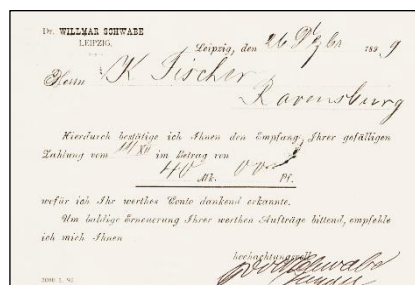 Dr. WILLMAR SCHWABE
LEIPZIG.
Leipzig, den 26 189
Herrn K. Fischer
Ravensburg
Hierdurch bestätige ich Ihnen den Empfang Ihrer gefälligen
Zahlung vom XII im Betrag von
40 Mk. Pf.
wofür ich Ihr werthes Conto dankend erkannte.
Um baldige Erneuerung Ihrer werthen Aufträge bittend, empfehle
ich mich Ihnen
hochachtungsvoll